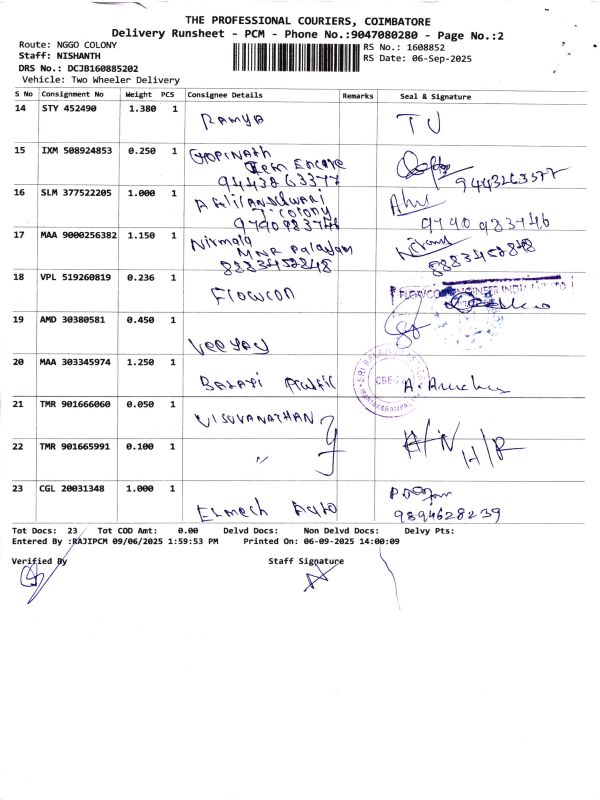 THE PROFESSIONAL COURIERS, COIMBATORE
Delivery Runsheet - PCM - Phone No.:9047080280 - Page No.:2
Route: NGGO COLONY
RS No.: 1608852
Staff: NISHANTH
RS Date: 06-Sep-2025
DRS No.: DCJB160885202
Vehicle: Two Wheeler Delivery
S No Consignment No Weight PCS Consignee Details Remarks Seal & Signature
14 STY 452490 1.380 1 RAMYA TU
15 IXM 508924853 0.250 1 GOPINATH
9443263377 9443263377
16 SLM 377522205 1.000 1
T. colony
9790983746 9790983746
17 MAA 9000256382 1.150 1 Nirmala
MNR Palayam
8883452848 8883452848
18 VPL 519260819 0.236 1 Flowcon FLOWCON ENGINEER INDIA
19 AMD 30380581 0.450 1 VEEYAY
20 MAA 303345974 1.250 1 BALAJI SRI BALAJI
CBE
21 TMR 901666060 0.050 1 VISUVANATHAN
22 TMR 901665991 0.100 1 〃 H/N H/R
23 CGL 20031348 1.000 1 ELMECH Auto
9894628239
Tot Docs: 23 Tot COD Amt: 0.00 Delvd Docs: Non Delvd Docs: Delvy Pts:
Entered By :RAJIPCM 09/06/2025 1:59:53 PM Printed On: 06-09-2025 14:00:09
Verified By Staff Signature